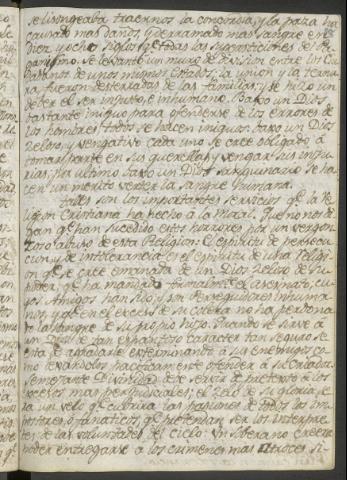 se lisongeaba traernos la concordia, y la paz, ha
causado mas daños, y derramado mas sangre en
Diez y ocho siglos qe. todas las supersticiones del Pa-
ganismo. Se levantó un muro de division entre los Ciu-
dadanos de unos mismos Estados, la union y la ternu-
ra fueron desterradas de las familias, y se hizo un
deber el ser injusto, e inhumano. Baxo un Dios
bastante iniquo para ofenderse de los errores de
los hombres todos se hacen iniquos: baxo un Dios
Zeloso, y vengativo cada uno se cree obligado à
tomar parte en sus querellas, y vengar sus inju-
rias; por ultimo baxo un Dios sanguinario se ha-
cen un merito verter la sangre humana.
Tales son los importantes servicios qe. la Re-
ligion Cristiana ha hecho à la Moral. Que no nos di-
gan qe. han sucedido estos horrores por un vergon-
zoso abuso de esta Religion: El espiritu de persecu-
cion, y de intolerancia es el espiritu de una Religi-
on qe. se cree emanada de un Dios Zeloso de su
Poder, qe. ha mandado formalmente el asesinato, cu-
yos Amigos han sido perseguidores inhuma-
nos, y qe. en el exceso de su colera no ha perdona-
do la sangre de su propio hijo. Quando se sirve à
un Dios de tan espantoso caracter tan seguro se
esta de agradarle exterminando à sus enemigos co-
mo dexandolos pacificamente ofender à su Criador.
Semejante Divinidad debe servir de pretexto à los
excesos mas perjudiciales; el zelo de su gloria, se-
rà un velo qe. cubrira las pasiones de todos los im-
postores, o fanaticos, qe. pretendan ser los interpre-
tes de las voluntades del cielo: Un Soberano creerà
poder entregarse a los crimenes mas atroces si-